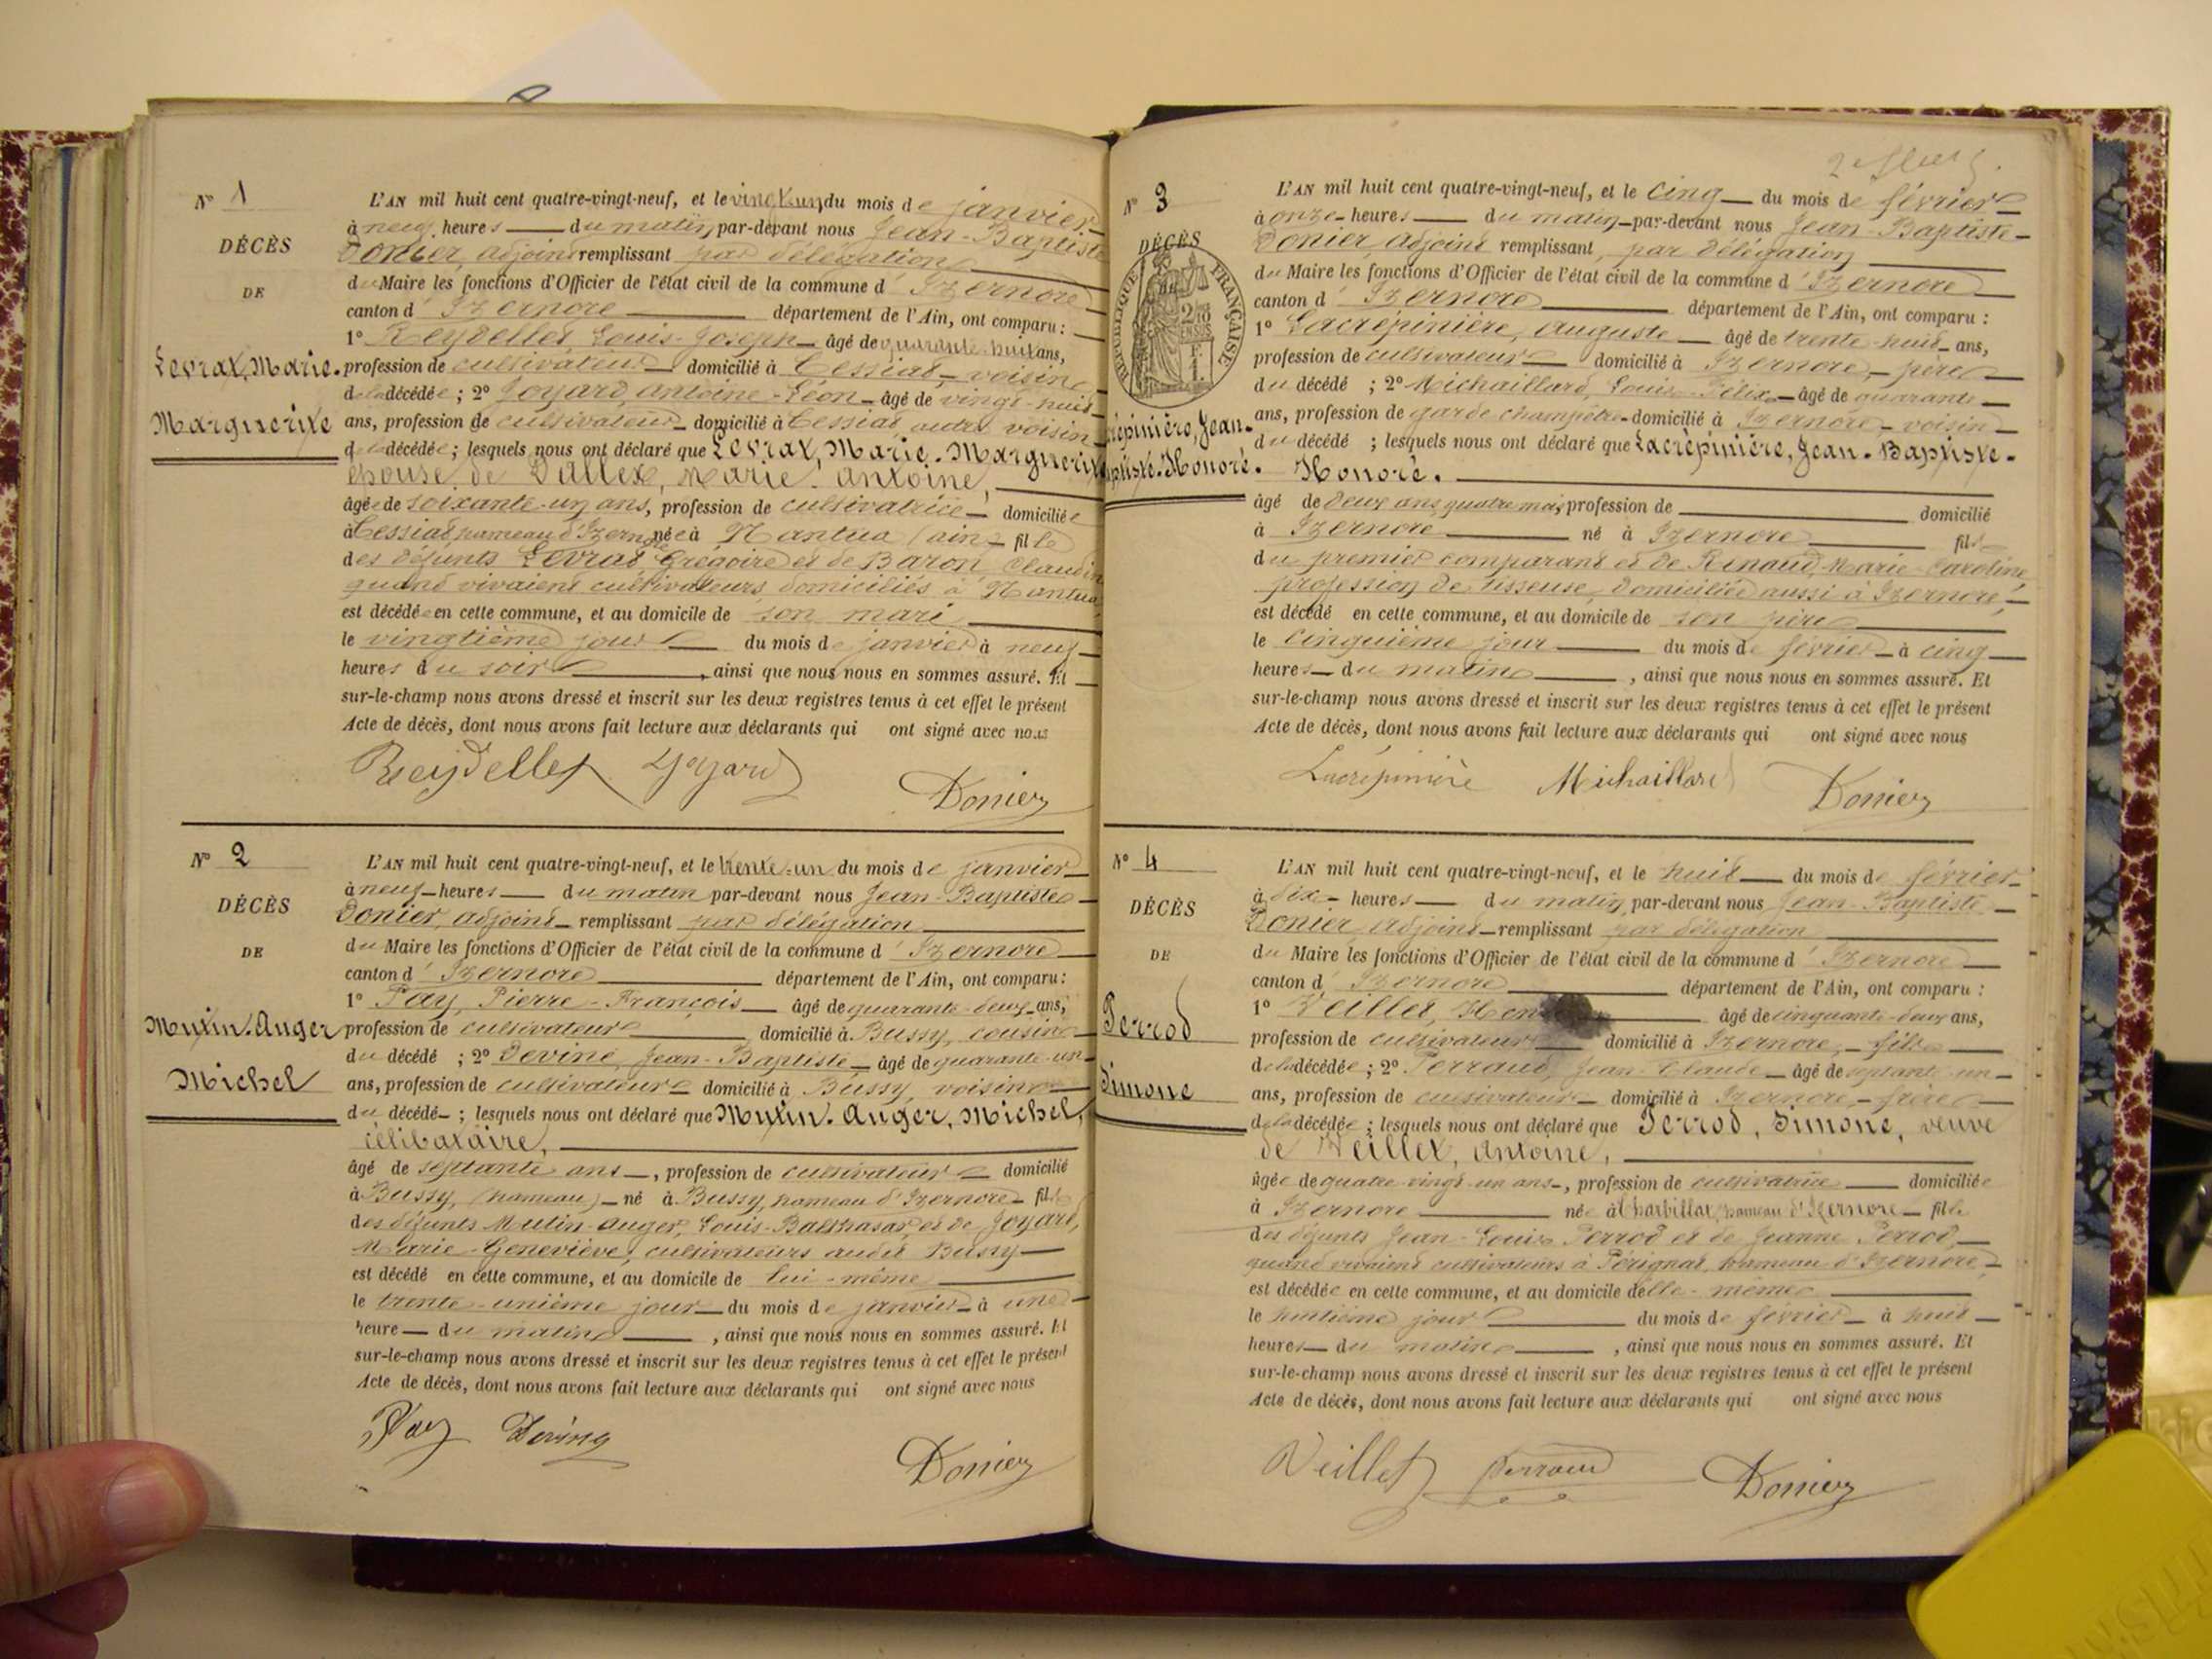 N° 1
DÉCÈS
DE
Levrat, Marie-
Marguerite
L'AN mil huit cent quatre-vingt-neuf, et le vingt-un du mois de janvier
à neuf heures du matin, par-devant nous Jean-Baptiste
Donier, adjoint remplissant par délégation
du Maire les fonctions d'Officier de l'état civil de la commune d'Izernore
canton d'Izernore département de l'Ain, ont comparu :
1° Reydellet, Louis-Joseph âgé de quarante-huit ans,
profession de cultivateur domicilié à Cessiat, voisin
de la décédée ; 2° Joyard, Antoine-Léon âgé de vingt-huit
ans, profession de cultivateur domicilié à Cessiat, autre voisin
de la décédée ; lesquels nous ont déclaré que Levrat, Marie-Marguerite
épouse de Vallet, Marie-Antoine,
âgée de soixante-un ans, profession de cultivatrice domiciliée
à Cessiat, hameau d'Izernore née à Nantua (Ain) fille
des défunts Levrat Grégoire et de Baron, Claudine
quand vivaient cultivateurs domiciliés à Nantua,
est décédée en cette commune, et au domicile de son mari
le vingtième jour du mois de janvier à neuf
heures du soir, ainsi que nous nous en sommes assuré. Et
sur-le-champ nous avons dressé et inscrit sur les deux registres tenus à cet effet le présent
Acte de décès, dont nous avons fait lecture aux déclarants qui ont signé avec nous
Reydellet Joyard Donier
N° 2
DÉCÈS
DE
Mutin-Auger
Michel
L'AN mil huit cent quatre-vingt-neuf, et le trente-un du mois de janvier
à neuf heures du matin par-devant nous Jean-Baptiste
Donier, adjoint remplissant par délégation
du Maire les fonctions d'Officier de l'état civil de la commune d'Izernore
canton d'Izernore département de l'Ain, ont comparu :
1° Pay, Pierre-François âgé de quarante-deux ans,
profession de cultivateur domicilié à Bussy, cousin
du décédé ; 2° Devine, Jean-Baptiste âgé de quarante-un
ans, profession de cultivateur domicilié à Bussy, voisin
du décédé ; lesquels nous ont déclaré que Mutin-Auger, Michel,
célibataire,
âgé de septante ans, profession de cultivateur domicilié
à Bussy, (hameau) né à Bussy, hameau d'Izernore fils
des défunts Mutin-Auger, Louis-Balthasar, et de Joyard,
Marie-Geneviève, cultivateurs audit Bussy
est décédé en cette commune, et au domicile de lui-même
le trente-unième jour du mois de janvier à une
heure du matin, ainsi que nous nous en sommes assuré. Et
sur-le-champ nous avons dressé et inscrit sur les deux registres tenus à cet effet le présent
Acte de décès, dont nous avons fait lecture aux déclarants qui ont signé avec nous
Pay Donier
N° 3
DÉCÈS
RÉPUBLIQUE FRANÇAISE
crépinière, Jean-
ptiste-Honoré.
L'AN mil huit cent quatre-vingt-neuf, et le cinq du mois de février
à onze heures du matin par-devant nous Jean-Baptiste
Donier, adjoint remplissant, par délégation
du Maire les fonctions d'Officier de l'état civil de la commune d'Izernore
canton d'Izernore département de l'Ain, ont comparu :
1° Lacrépinière, Auguste âgé de trente-huit ans,
profession de cultivateur domicilié à Izernore, père
du décédé ; 2° Michaillard, Louis-Félix âgé de quarante
ans, profession de garde champêtre domicilié à Izernore, voisin
du décédé ; lesquels nous ont déclaré que Lacrépinière, Jean-Baptiste-
Honoré.
âgé de deux ans quatre mois, profession de domicilié
à Izernore né à Izernore fils
du premier comparant et de Renaud, Marie-Caroline,
profession de tisseuse, domiciliée aussi à Izernore,
est décédé en cette commune, et au domicile de son père
le cinquième jour du mois de février à cinq
heures du matin, ainsi que nous nous en sommes assuré. Et
sur-le-champ nous avons dressé et inscrit sur les deux registres tenus à cet effet le présent
Acte de décès, dont nous avons fait lecture aux déclarants qui ont signé avec nous
Lacrépinière Michaillard Donier
N° 4
DÉCÈS
DE
Perrod
Simone
L'AN mil huit cent quatre-vingt-neuf, et le huit du mois de février
à dix heures du matin, par-devant nous Jean-Baptiste
Donier adjoint remplissant par délégation
du Maire les fonctions d'Officier de l'état civil de la commune d'Izernore
canton d'Izernore département de l'Ain, ont comparu :
1° Veillet, âgé de cinquante-deux ans,
profession de cultivateur domicilié à Izernore, fils
de la décédée ; 2° Perraud, Jean-Claude âgé de septante-un
ans, profession de cultivateur domicilié à Izernore, frère
de la décédée ; lesquels nous ont déclaré que Perrod, Simone, veuve
de Veillet, Antoine,
âgée de quatre-vingt-un ans, profession de cultivatrice domiciliée
à Izernore née à Charbillat, hameau d'Izernore fille
des défunts Jean-Louis Perrod et de Jeanne Perrod,
quand vivaient cultivateurs à Pérignat, hameau d'Izernore,
est décédée en cette commune, et au domicile d'elle-même
le huitième jour du mois de février à huit
heures du matin, ainsi que nous nous en sommes assuré. Et
sur-le-champ nous avons dressé et inscrit sur les deux registres tenus à cet effet le présent
Acte de décès, dont nous avons fait lecture aux déclarants qui ont signé avec nous
Veillet Perraud Donier